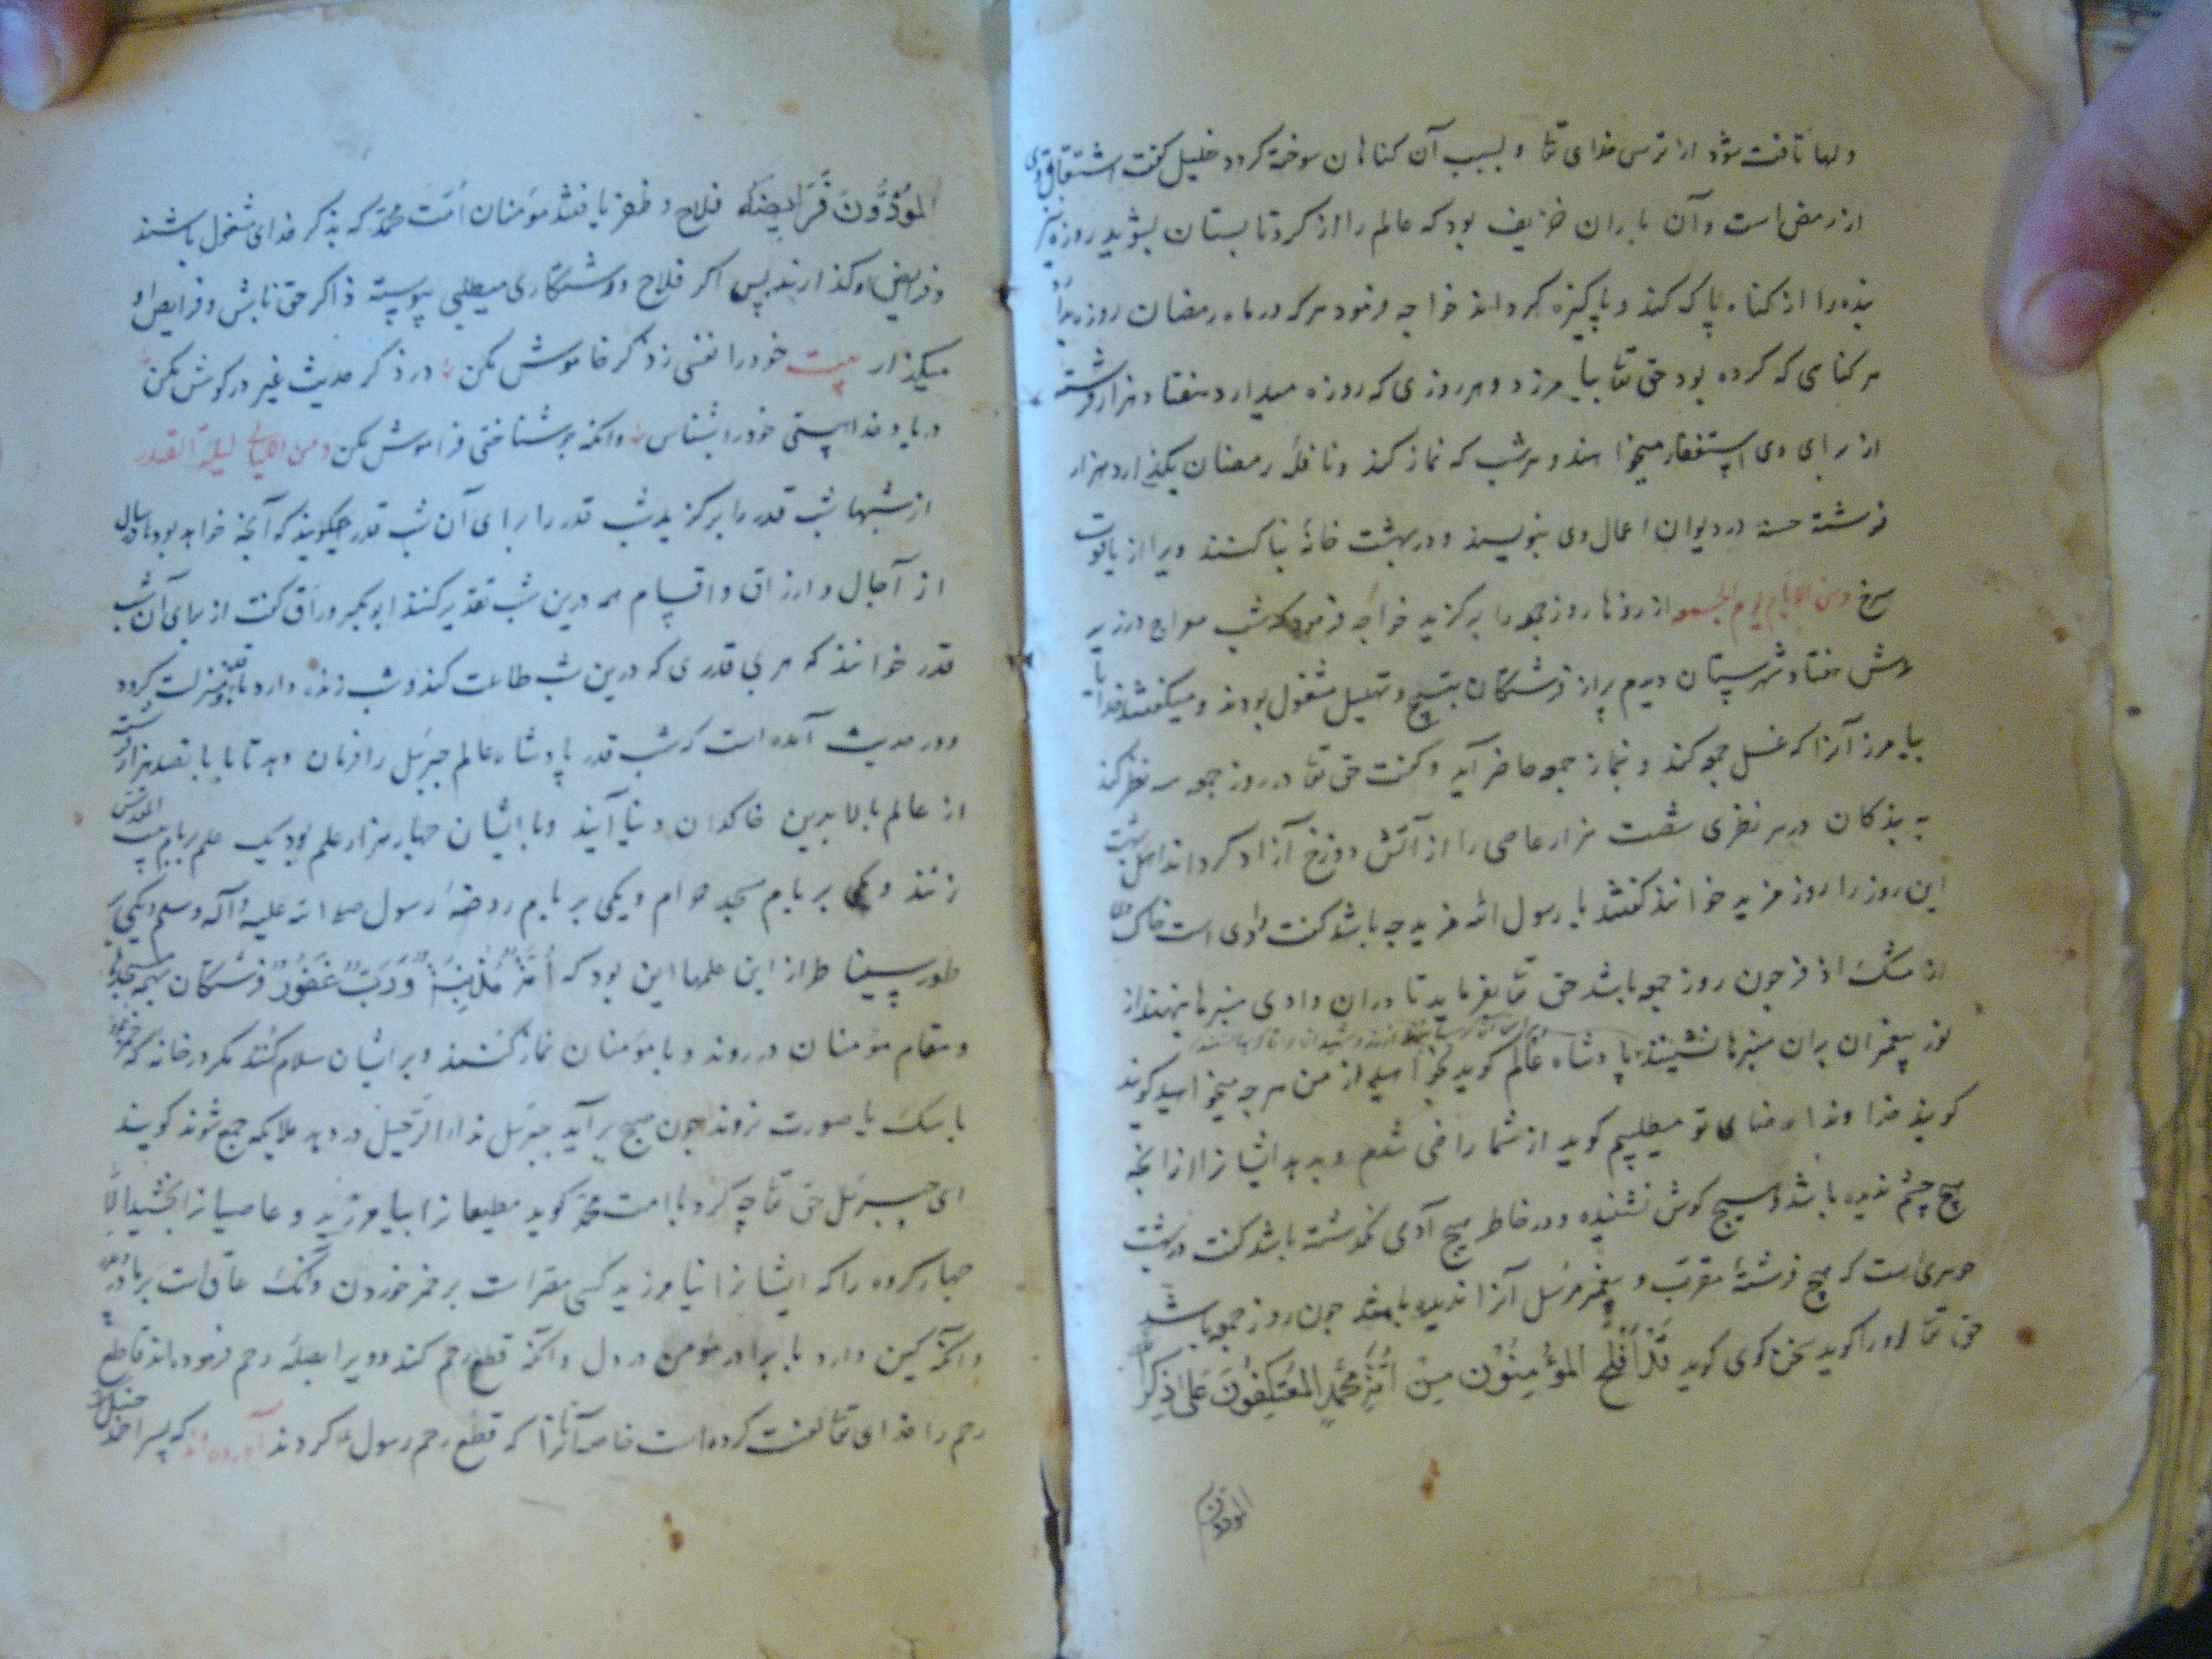 دلها تافته شود از ترس خدای تعا و بسبب آن کناهان سوخته کردد خلیل کفت اشتقاق وی
از رمض است و آن باران خریف بود که عالم را از کرد تابستان بشوید روزه نیز
بنده را از کناه پاک کند و پاکیزه کرداند خواجه فرمود هرکه در ماه رمضان روزه دارد
هر کناهی که کرده بود حق تعا بیامرزد و هر روزی که روزه میدارد هفتاد هزار فرشته
از برای وی استغفار میخواهند و هر شب که نماز کند و نافلهٔ رمضان بکذارد هزار
فرشته حسنه در دیوان اعمال وی بنویسند و در بهشت خانهٔ بنا کنند ویرا از یاقوت
سرخ و من الایام یوم الجمعه از روزها روز جمعه را برکزید خواجه فرمود که شب معراج در زیر
عرش هفتاد شهرستان دیدم پر از فرشتکان بتسبیح و تهلیل مشغول بودند و میکفتند خدایا
بیامرز آنرا که غسل جمعه کند و بنماز جمعه حاضر آید و کفت حق تعا در روز جمعه سه نظر کند
به بندکان در هر نظری شصت هزار عاصی را از آتش دوزخ آزاد کرداند اهل بهشت
این روز را روز مزید خوانند کفتند یا رسول الله مزید چه باشد کفت وادی است خاک وی
از مشک اذفر چون روز جمعه باشد حق تعا بفرماید تا دران وادی منبرها بنهند از
نور پیغمبران بران منبرها نشینند پادشاه عالم کوید بخواهید از من هرچه میخواهید کویند
کویند خداوندا رضای تو میطلبیم کوید از شما راضی شدم و بدهد ایشانرا از آنچه
هیچ چشم ندیده باشد و هیچ کوش نشنیده و در خاطر هیچ آدمی نکذشته باشد کفت در بهشت
حوری است که هیچ فرشتهٔ مقرب و پیغمبر مرسل آنرا ندیده باشد چون روز جمعه باشد
حق تعا او را کوید سخن کوی کوید قَد اَفلَحَ المُؤمِنُونَ مِن اُمَّةِ مُحَمَّدٍ المُعتَکِفُونَ عَلی ذِکرِ
المودون
المُؤَدُّونَ فَرَایِضَهُ فلاح و ظفر یافتند مؤمنان امّت محمد که بذکر خدای مشغول باشند
و فرایض او کذارند پس اکر فلاح و رستکاری میطلبی پیوسته ذاکر حق تا باش و فرایض او
میکذار بیت خود را نفسی ز ذکر خاموش مکن در ذکر حدیث غیر در کوش مکن
در یاد خدا هستی خود را بشناس وانکه چو شناختی فراموش مکن و من اللیالی لیلة القدر
از شبها شب قدر را برکزید شب قدر را برای آن شب قدر میکویند که آنچه خواهد بود تا سال
از آجال و ارزاق و اقسام همه درین شب تقدیر کنند ابوبکر وراق کفت از برای آن شب
قدر خوانند که هر بی قدری که درین شب طاعت کند و شب زنده دارد با قدر و منزلت کردد
و در حدیث آمده است که شب قدر پادشاه عالم جبرئیل را فرمان دهد تا با پانصد هزار فرشته
از عالم بالا بدین خاکدان دنیا آیند و با ایشان چهار هزار علم بود یک علم بر بام بیت المقدس
زنند و یکی بر بام مسجد حرام و یکی بر بام روضهٔ رسول صلی الله علیه و آله و سلم و یکی بر
طور سینا طراز این علمها این بود که اُمَّةٌ مُذنِبَةٌ وَرَبٌّ غَفُورٌ فرشتکان بهمه مسجدها
و مقام مؤمنان در روند و با مؤمنان نماز کنند و بر ایشان سلام کنند مکر در خانه که خمر
یا سک یا صورت نروند چون صبح برآید جبرئیل ندا الرحیل در دهد ملایکه جمع شوند کویند
ای جبرئیل حق تعا چه کرد با امت محمد کوید مطیعانرا بیامرزید و عاصیانرا بخشید الّا
چهار کروه را که ایشانرا نیامرزید کسی مقر است بر خمر خوردن و آنکه عاق است بر مادر
و آنکه کین دارد با برادر مؤمن در دل و آنکه قطع رحم کند و ویرا بصلهٔ رحم فرموده‌اند قاطع
رحم را خدای تعا لعنت کرده است خاصه آنانرا که قطع رحم رسول کردند آورده‌اند که پسر احمد حنبل